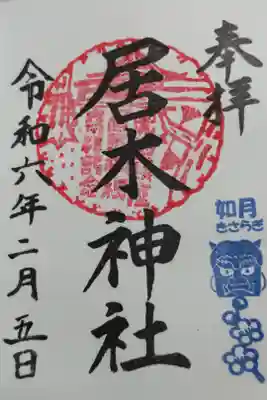 奉拝
居木神社
如月
きさらぎ
令和六年二月五日